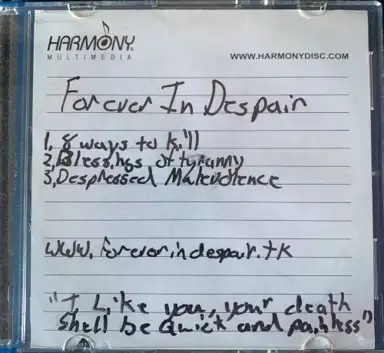 HARMONY
MULTIMEDIA
WWW.HARMONYDISC.COM
Forever In Despair
1, 8 ways to k.'ll
2, Blessings of tyranny
3, Despressed Malevolence
www.foreverindespair.tk
"I Like you, your death
shall be quick and painless"